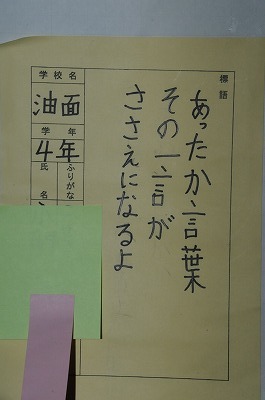 標語
あったか言葉
その一言が
ささえになるよ
学校名
油面
学年
4年
ふりがな
氏名